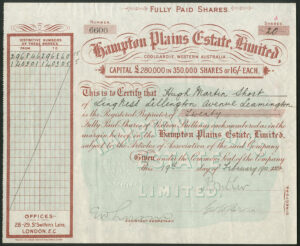 FULLY PAID SHARES
NUMBER
6606
SHARES
20
Hampton Plains Estate, Limited.
COOLGARDIE, WESTERN AUSTRALIA
CAPITAL £280,000 IN 350,000 SHARES OF 16/- EACH.
DISTINCTIVE NUMBERS
OF TOTAL SHARES
FROM
TO
This is to Certify that Hugh Martin Short
of Lillington Avenue Leamington
is the Registered Proprietor of Twenty
Fully Paid Shares of Sixteen Shillings each numbered as in the
margin hereof in the Hampton Plains Estate, Limited,
subject to the Articles of Association of the said Company
Given under the Common Seal of the Company
the 19th day of February
LIMITED.
OFFICES:
28-29, St Swithin's Lane,
LONDON, E.C.